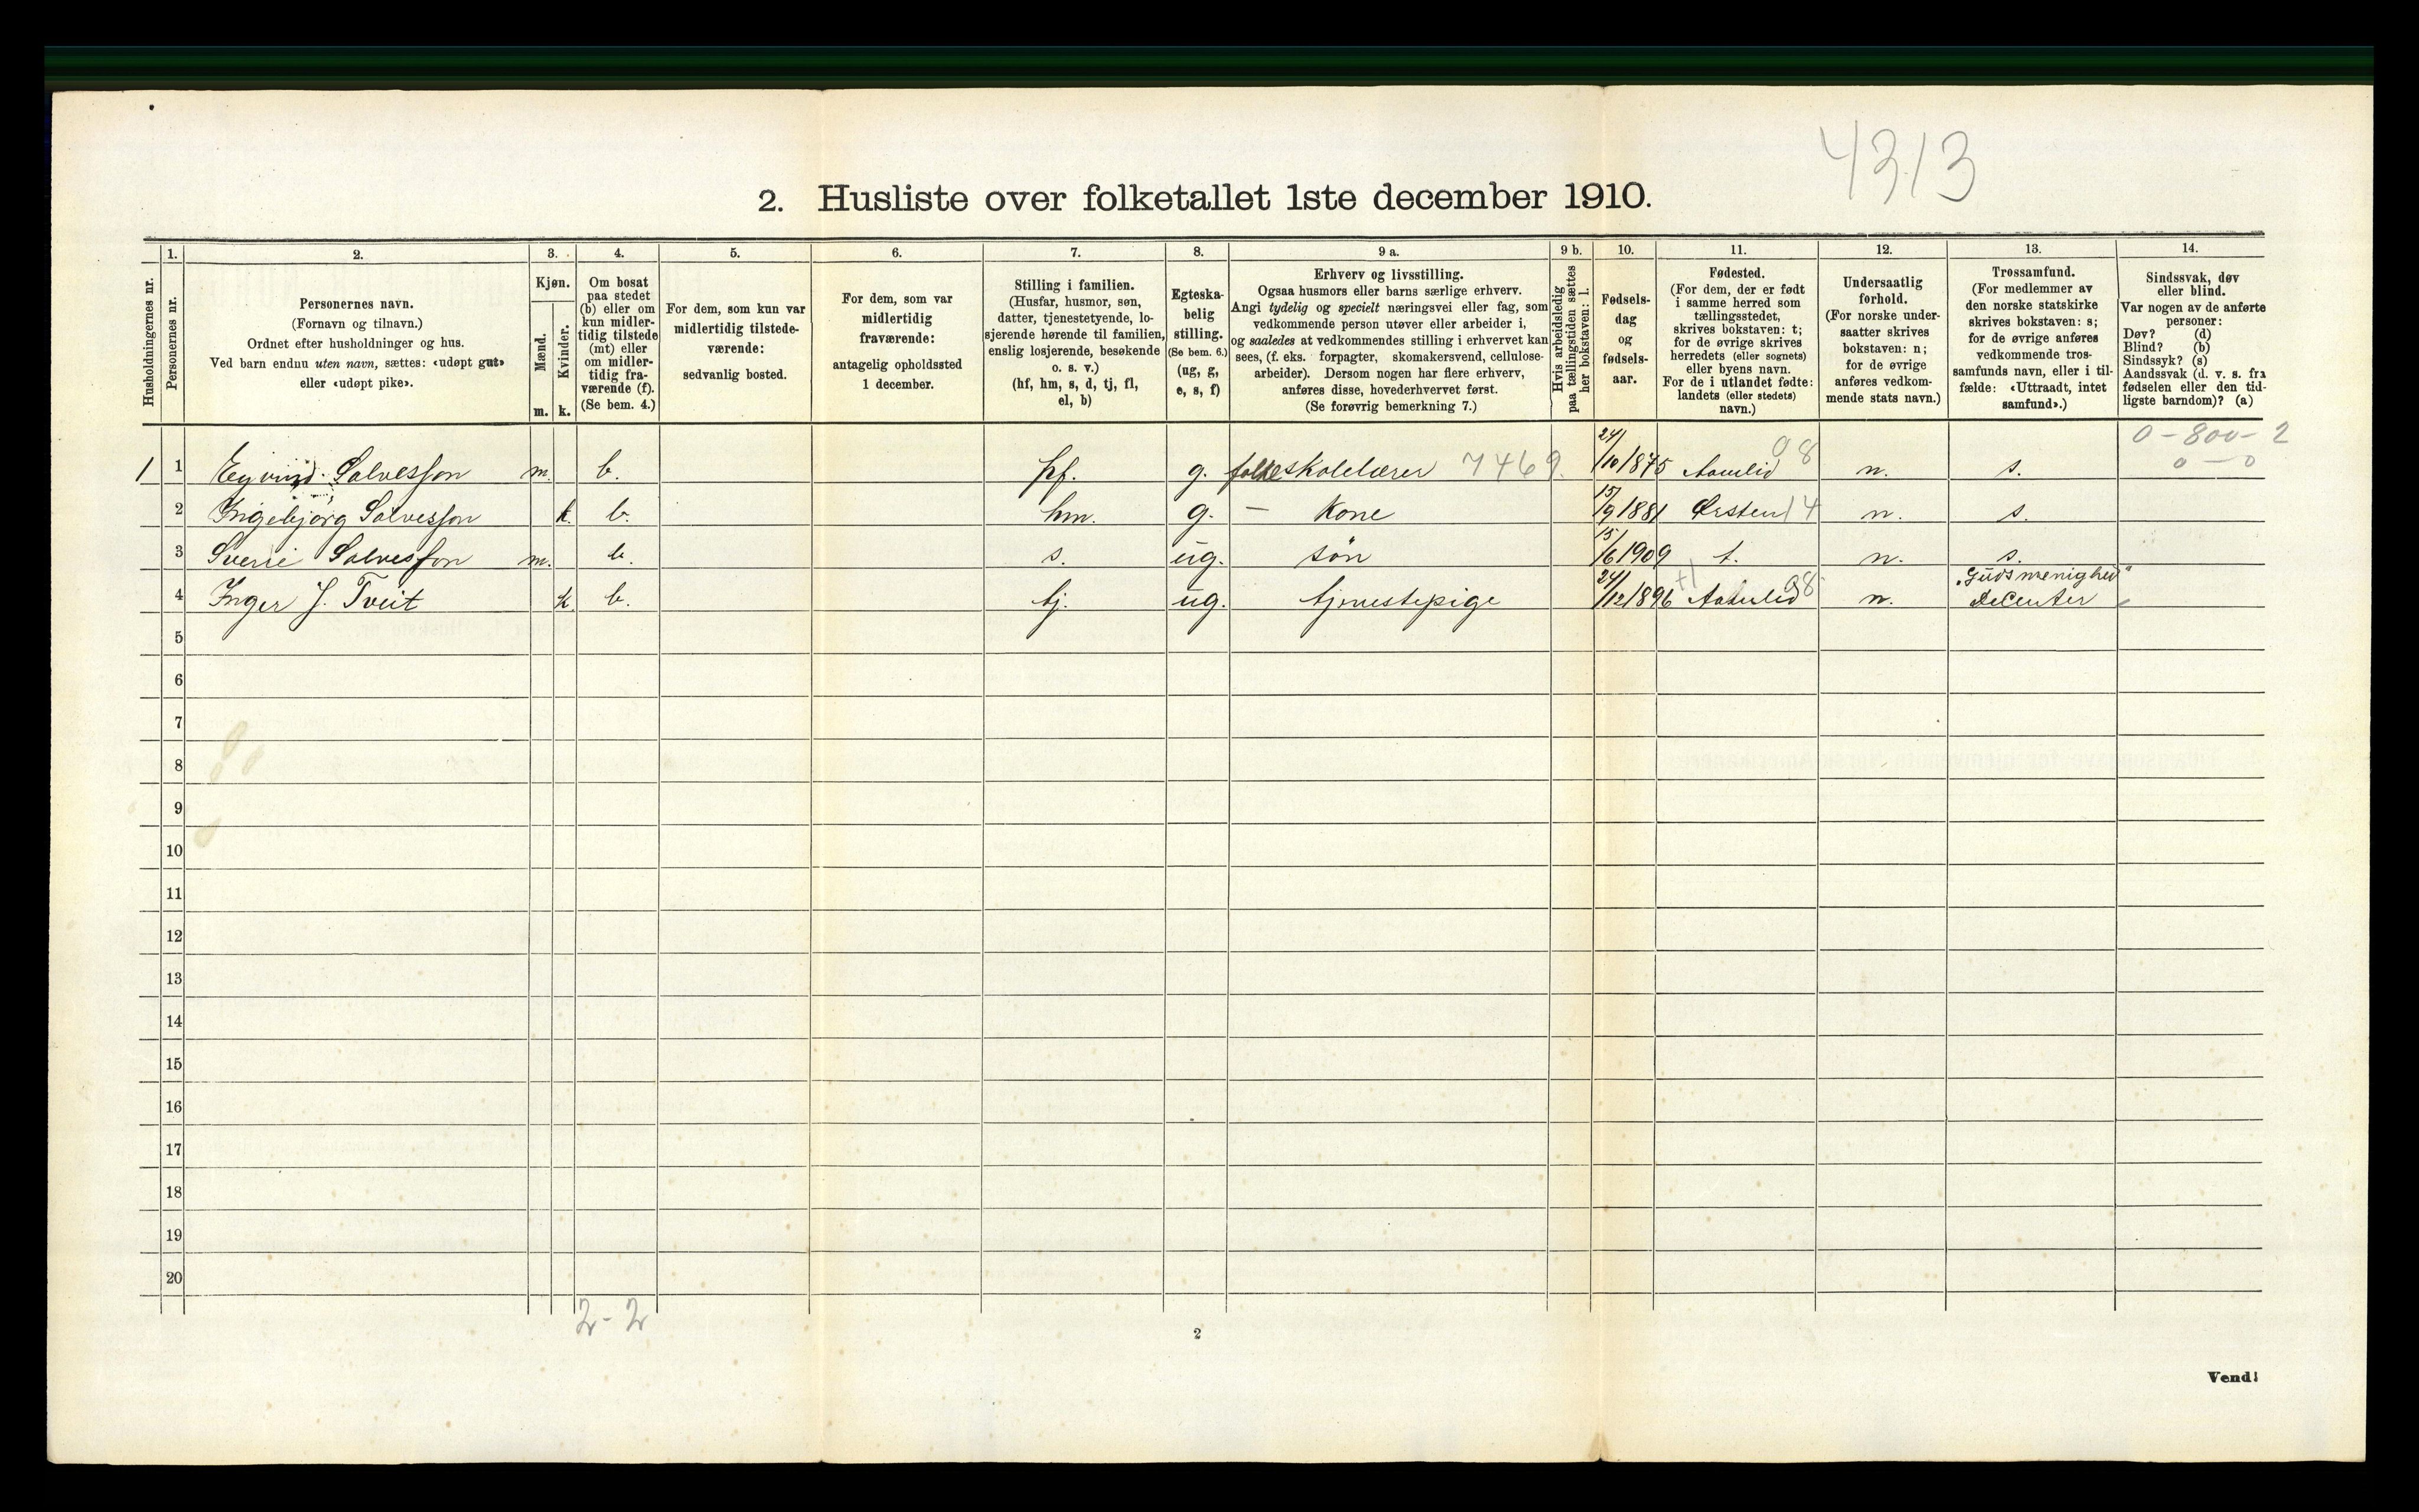 4313
2. Husliste over folketallet 1ste december 1910.
Husholdningernes nr.
1.
Personernes nr.
2.
Personernes navn.
(Fornavn og tilnavn.)
Ordnet efter husholdninger og hus.
Ved barn endnu uten navn, sættes: «udøpt gut»
eller «udøpt pike».
3.
Kjøn.
Mænd.
Kvinder.
m. k.
4.
Om bosat
paa stedet
(b) eller om
kun midler-
tidig tilstede
(mt) eller
om midler-
tidig fra-
værende (f).
(Se bem. 4.)
5.
For dem, som kun var
midlertidig tilstede-
værende:
sedvanlig bosted.
6.
For dem, som var
midlertidig
fraværende:
antagelig opholdssted
1 december.
7.
Stilling i familien.
(Husfar, husmor, søn,
datter, tjenestetyende, lo-
sjerende hørende til familien,
enslig losjerende, besøkende
o. s. v.)
(hf, hm, s, d, tj, fl,
el, b)
8.
Egteska-
belig
stilling.
(Se bem. 6.)
(ug, g,
e, s, f)
9 a.
Erhverv og livsstilling.
Ogsaa husmors eller barns særlige erhverv.
Angi tydelig og specielt næringsvei eller fag, som
vedkommende person utøver eller arbeider i,
og saaledes at vedkommendes stilling i erhvervet kan
sees, (f. eks. forpagter, skomakersvend, cellulose-
arbeider). Dersom nogen har flere erhverv,
anføres disse, hovederhvervet først.
(Se forøvrig bemerkning 7.)
9 b.
Hvis arbeidsledig
paa tællingstiden sættes
her bokstaven: l.
10.
Fødsels-
dag
og
fødsels-
aar.
11.
Fødested.
(For dem, der er født
i samme herred som
tællingsstedet,
skrives bokstaven: t;
for de øvrige skrives
herredets (eller sognets)
eller byens navn.
For de i utlandet fødte:
landets (eller stedets)
navn.)
12.
Undersaatlig
forhold.
(For norske under-
saatter skrives
bokstaven: n;
for de øvrige
anføres vedkom-
mende stats navn.)
13.
Trossamfund.
(For medlemmer av
den norske statskirke
skrives bokstaven: s;
for de øvrige anføres
vedkommende tros-
samfunds navn, eller i til-
fælde: «Uttraadt, intet
samfund».)
14.
Sindssvak, døv
eller blind.
Var nogen av de anførte
personer:
Døv? (d)
Blind? (b)
Sindssyk? (s)
Aandssvak (d. v. s. fra
fødselen eller den tid-
ligste barndom)? (a)
0-800-2
0-0
1 1 Eyvind Salvesson m. b. hf. g. folkeskolelærer 7469. 24/10 1875 Aamlid 98 n. s.
2 Ingebjørg Salvesson k. b. hm. g. - Kone 15/9 1881 Ørsten 14 n. s.
3 Sverre Salvesson m. b. s. ug. søn 15/6 1909 t. n. s.
4 Inger J. Tveit k. b. tj. ug. tjenestepige 24/12 1896 +1 Aamlid 98 n. "Gudsmenighed" decenter
5
6
7
8
9
10
11
12
13
14
15
16
17
18
19
20
2-2
2
Vend!